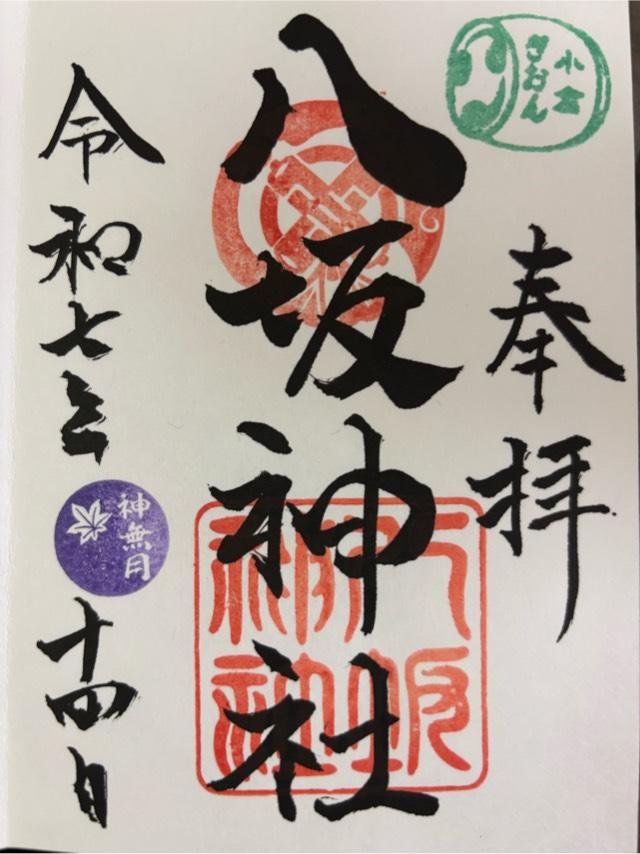 ぎおん
奉拝
八坂神社
八坂
神社
令和七年
神無月
十四日